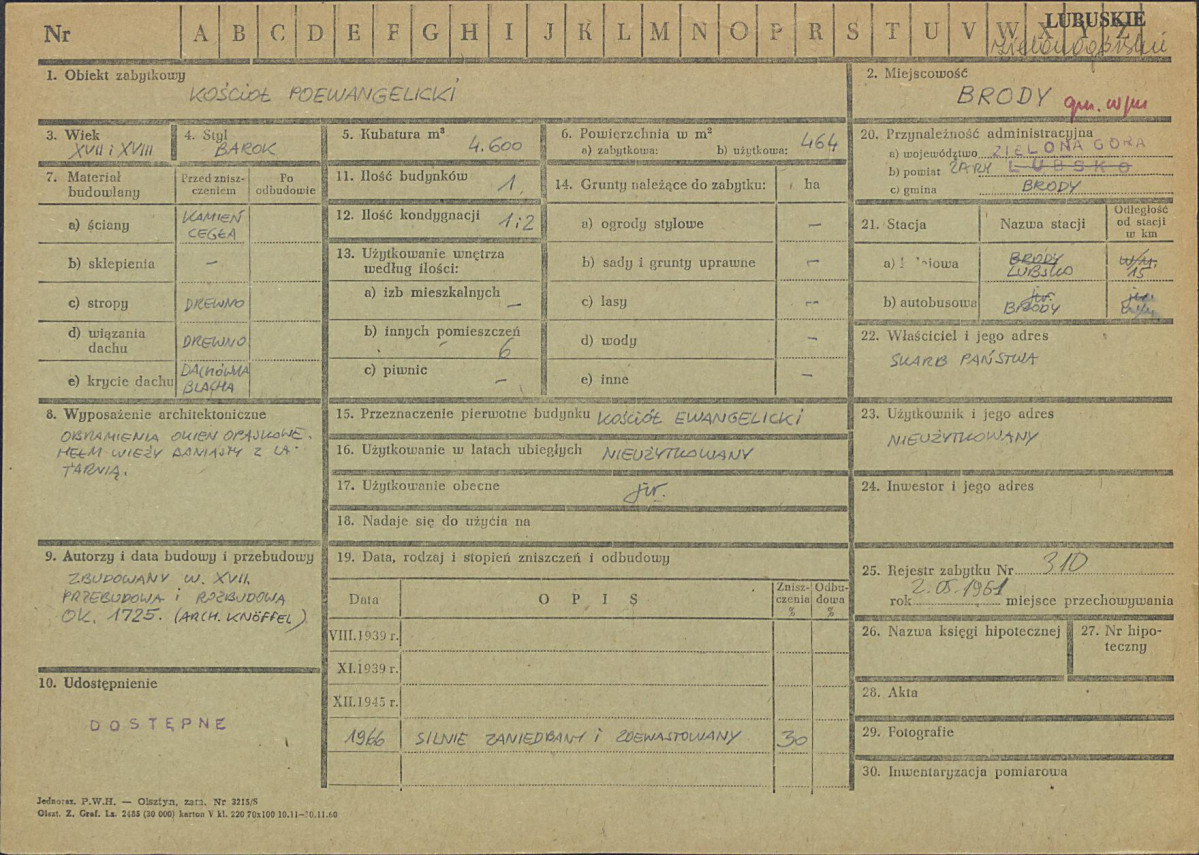 Nr A B C D E F G H I J K L M N O P R S T U V W X Y Z
LUBUSKIE
zielonogórskie
1. Obiekt zabytkowy
KOŚCIÓŁ POEWANGELICKI
2. Miejscowość
BRODY gm. w/m
3. Wiek
XVII i XVIII
4. Styl
BAROK
5. Kubatura m³
4.600
6. Powierzchnia w m²
a) zabytkowa: b) użytkowa: 464
20. Przynależność administracyjna
a) województwo ZIELONA GÓRA
b) powiat ŻARY LUBSKO
c) gmina BRODY
7. Materiał budowlany
Przed zniszczeniem
Po odbudowie
a) ściany KAMIEŃ CEGŁA
b) sklepienia –
c) stropy DREWNO
d) wiązania dachu DREWNO
e) krycie dachu DACHÓWKA BLACHA
11. Ilość budynków 1.
12. Ilość kondygnacji 1 i 2
13. Użytkowanie wnętrza według ilości:
a) izb mieszkalnych –
b) innych pomieszczeń 6
c) piwnic –
14. Grunty należące do zabytku: ha
a) ogrody stylowe –
b) sady i grunty uprawne –
c) lasy –
d) wody –
e) inne –
21. Stacja Nazwa stacji Odległość od stacji w km
BRODY w/m.
LUBSKO 15
b) autobusowa jw.
BRODY
22. Właściciel i jego adres
SKARB PAŃSTWA
8. Wyposażenie architektoniczne
OBRAMIENIA OKIEN OPASKOWE.
HEŁM WIEŻY BANIASTY Z LA-
TARNIĄ.
15. Przeznaczenie pierwotne budynku KOŚCIÓŁ EWANGELICKI
16. Użytkowanie w latach ubiegłych NIEUŻYTKOWANY
17. Użytkowanie obecne jw.
18. Nadaje się do użycia na
23. Użytkownik i jego adres
NIEUŻYTKOWANY
24. Inwestor i jego adres
9. Autorzy i data budowy i przebudowy
ZBUDOWANY W. XVII,
PRZEBUDOWA i ROZBUDOWA
OK. 1725. (ARCH. KNÖFFEL)
19. Data, rodzaj i stopień zniszczeń i odbudowy
Data OPIS Zniszczenia % Odbudowa %
VIII.1939 r.
XI.1939 r.
XII.1945 r.
1966 SILNIE ZANIEDBANY i ZDEWASTOWANY 30
25. Rejestr zabytku Nr 310
rok 2.05.1961 miejsce przechowywania
26. Nazwa księgi hipotecznej
27. Nr hipoteczny
28. Akta
29. Fotografie
30. Inwentaryzacja pomiarowa
10. Udostępnienie
DOSTĘPNE
Jednoraz. P.W.H. — Olsztyn, zam. Nr 3215/S
Olszt. Z. Graf. Lz. 2485 (30 000) karton V kl. 220 70x100 10.11—30.11.60